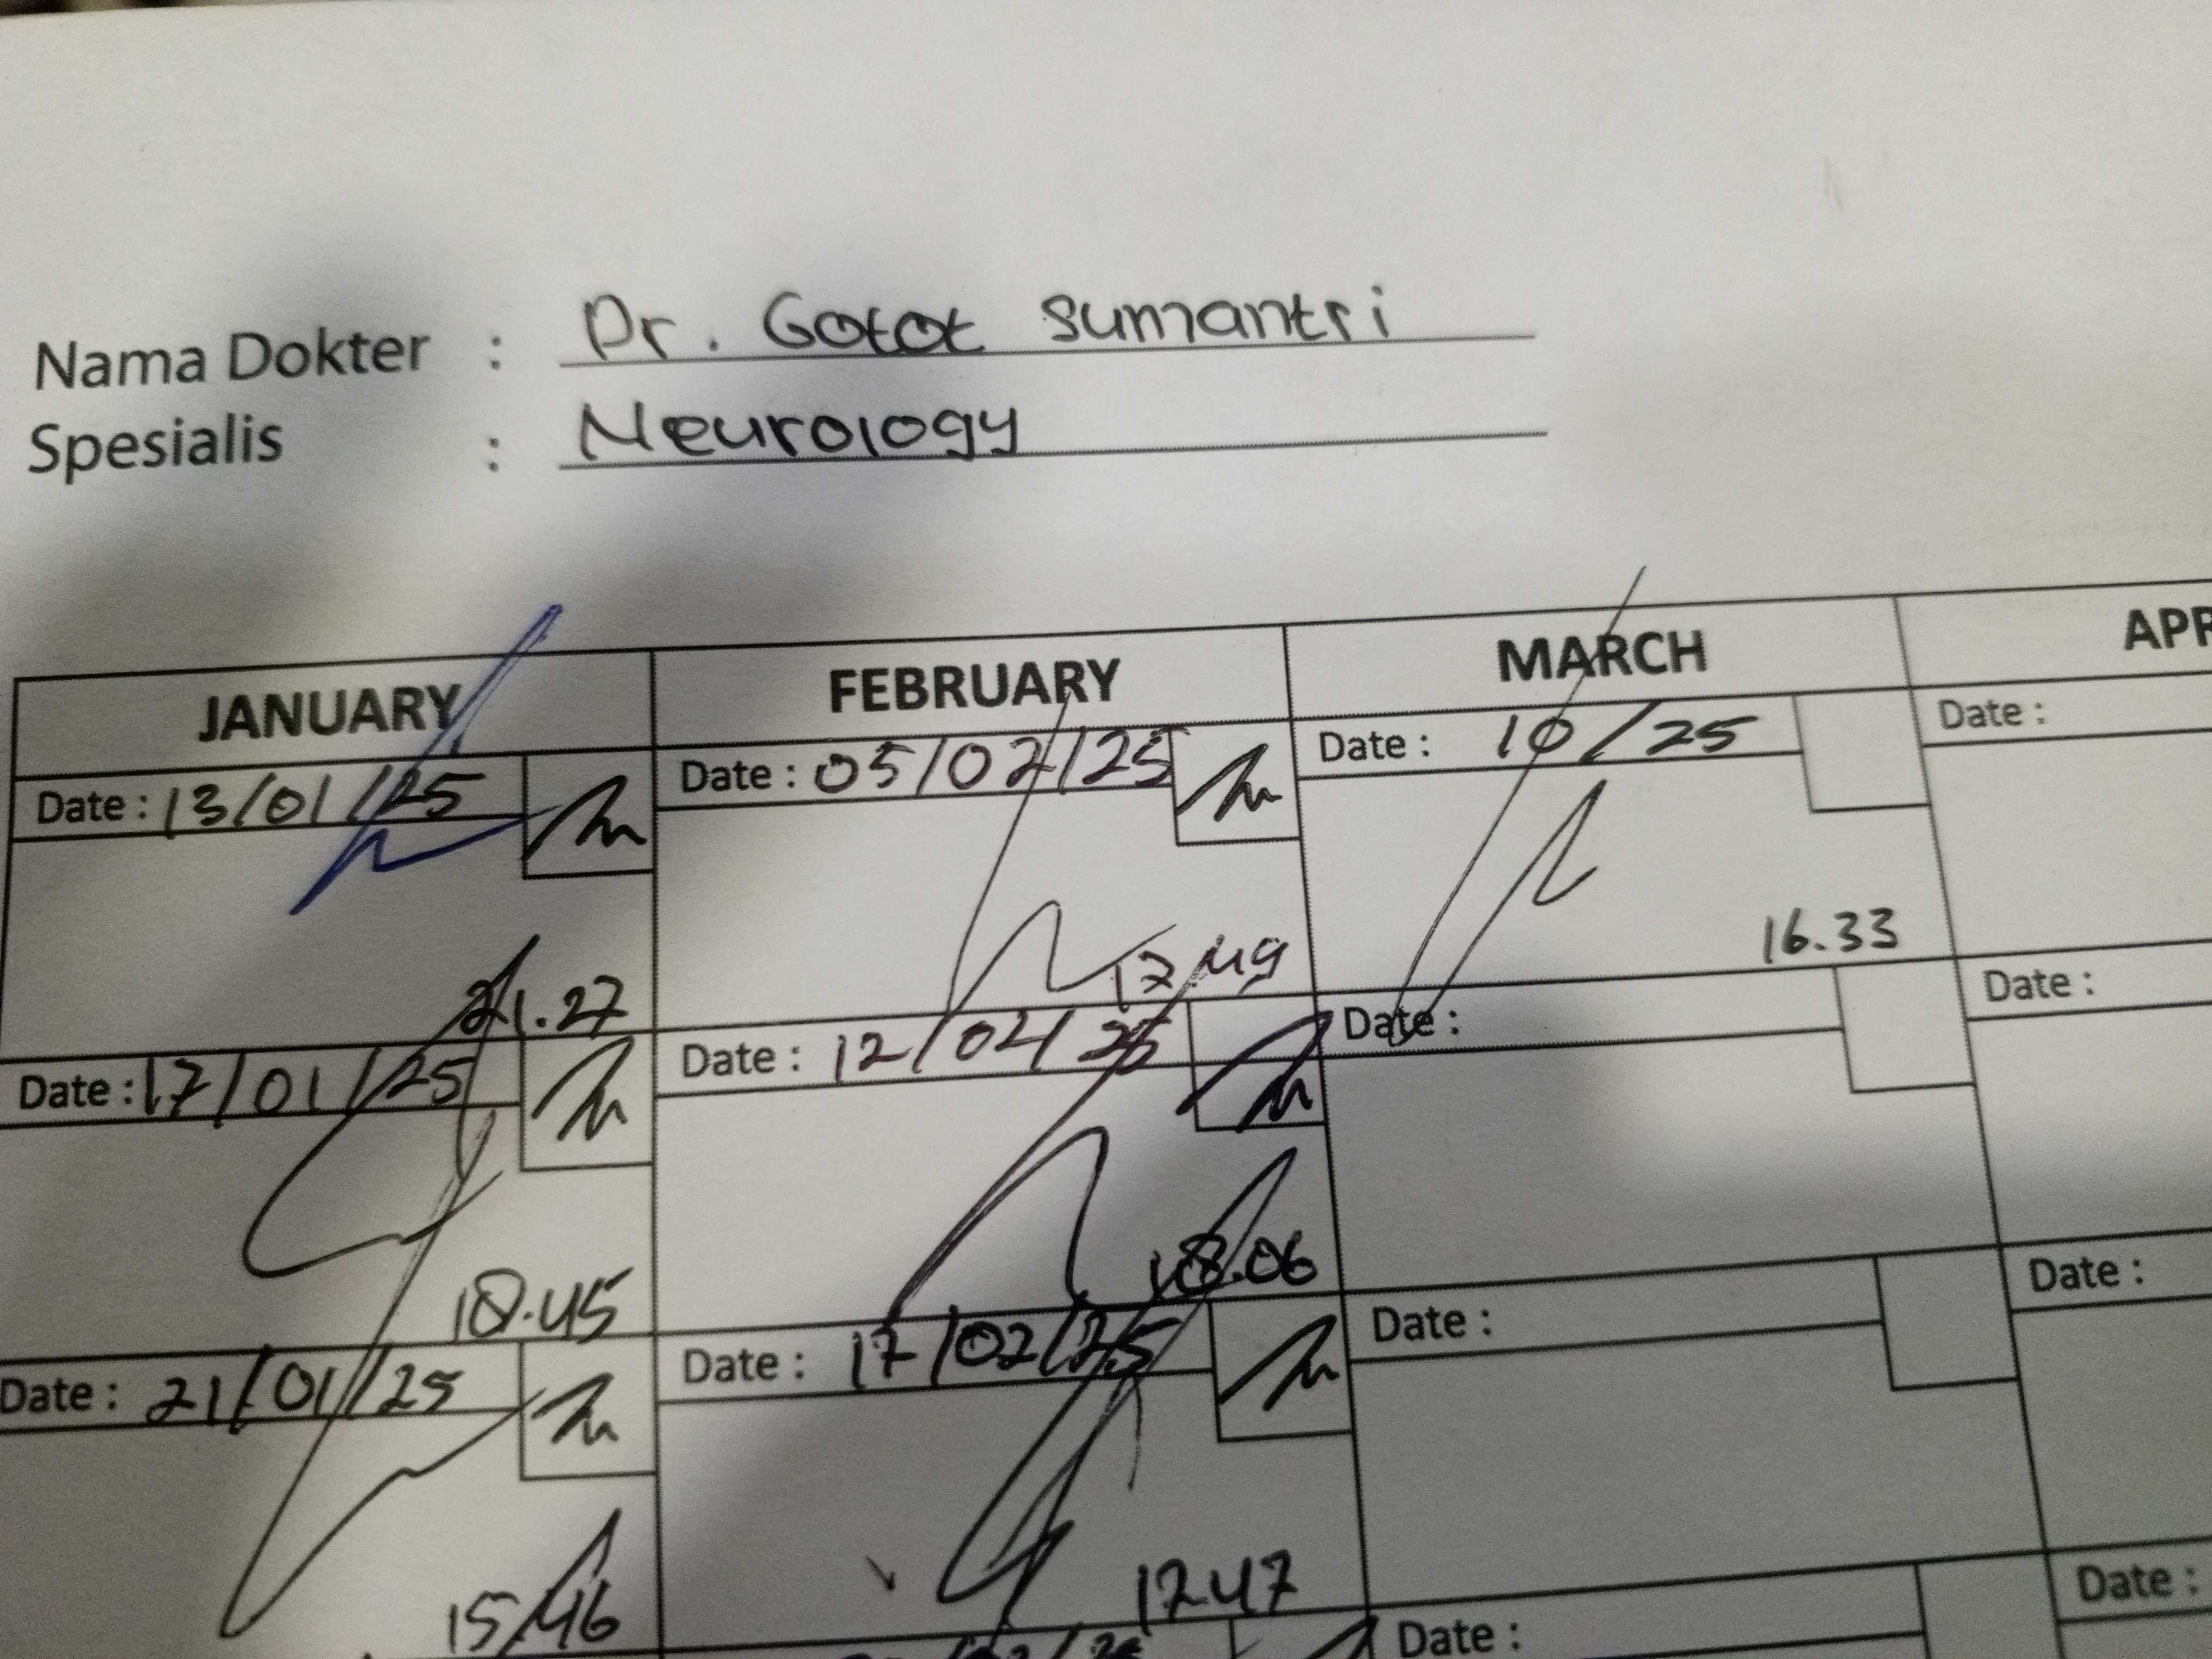 Nama Dokter : Dr. Gotot Sumantri
Spesialis : Neurology
JANUARY FEBRUARY MARCH APR
Date : 13/01/25 Date : 05/02/25 Date : 10/25 Date :
21.27 17.49 16.33
Date : 17/01/25 Date : 12/02/25 Date : Date :
18.45 18.06
Date : 21/01/25 Date : 17/02/25 Date : Date :
15.46 17.47
Date : Date :